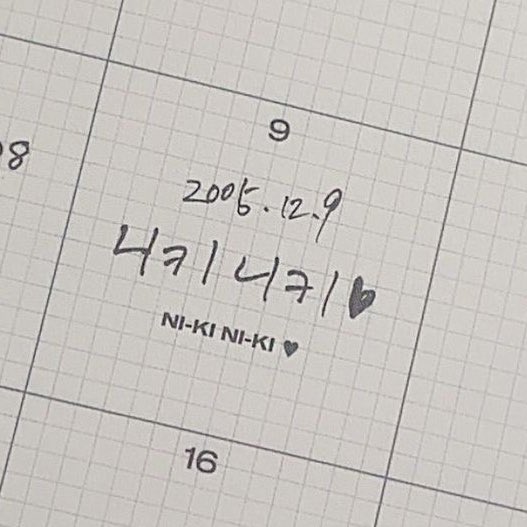 9
8
2005.12.9
니키 니키♥
NI-KI NI-KI ♥
16